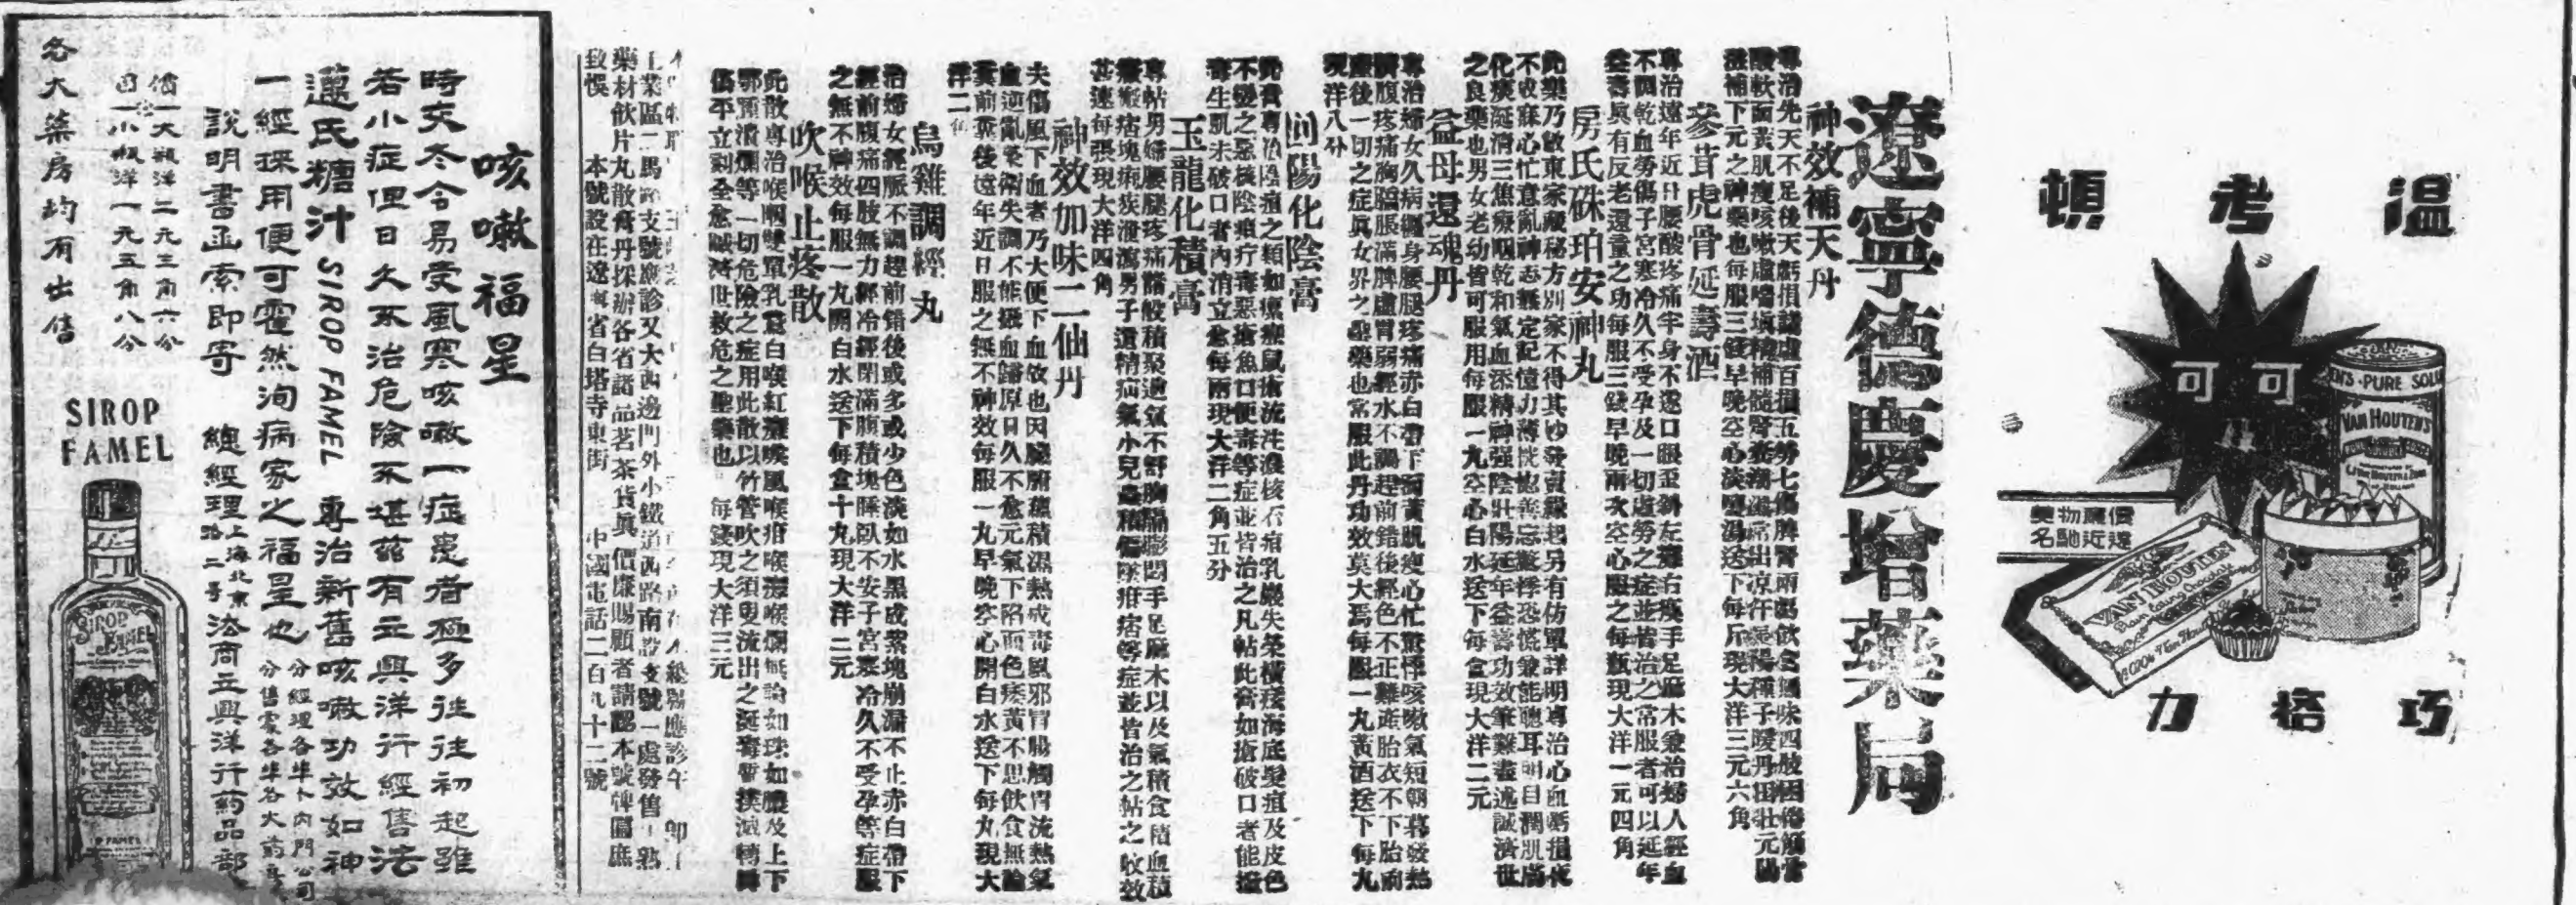 溫考頓
可可
EN'S PURE SOLU
VAN HOUTEN'S
價廉物美
遠近馳名
VAN HOUTEN
巧格力
遼寧德慶增藥局
神效補天丹
專治先天不足後天虧損諸虛百損五勞七傷脾腎兩虧飲食無味四肢困倦筋骨
酸軟面黃肌瘦咳嗽虛喘填精補髓腎
滋補下元之神藥也每服三錢早晚空心淡鹽湯送下每斤現大洋三元六角
參茸虎骨延壽酒
專治遠年近日腰酸疼痛半身不遂口眼歪斜左癱右瘓手足麻木兼治婦人經血
不調乾血勞傷子宮寒冷久不受孕及一切虛勞之症並皆治之常服者可以延年
益壽真有反老還童之功每服三錢早晚兩次空心服之每瓶現大洋一元四角
房氏硃珀安神丸
此藥乃敝東家藏秘方別家不得其妙發賣緣起另有仿單詳明專治心血虧損夜
不收寐心忙意亂神志無定記憶力薄恍惚善忘驚悸恐慌兼能聰耳明目潤肌膚
化痰涎清三焦療咽乾和氣血添精神强陰壯陽延年益壽功效筆難盡述誠濟世
之良藥也男女老幼皆可服用每服一丸空心白水送下每盒現大洋二元
益母還魂丹
專治婦女久病纏身腰腿疼痛赤白帶下面黃肌瘦心忙驚悸咳嗽氣短朝暮發熱
臍腹疼痛胸膈脹滿脾虛胃弱經水不調趕前錯後經色不正難產胎衣不下胎前
產後一切之症真女界之聖藥也常服此丹功效莫大焉每服一丸黃酒送下每丸
現洋八分
回陽化陰膏
此膏專治陰疽之類如瘰癧鼠瘡流注痰核石疽乳巖失榮橫痃海底發疽及皮色
不變之惡核陰疽疔毒惡瘡魚口便毒等症並皆治之凡帖此膏如瘡破口者能拔
毒生肌未破口者內消立愈每兩現大洋二角五分
玉龍化積膏
專帖男婦腰腿疼痛諸般積聚過氣不舒胸膈膨悶手足麻木以及氣積食積血積
癥瘕痞塊痢疾泄瀉男子遺精疝氣小兒蟲積偏墜疳痞等症並皆治之帖之收效
甚速每張現大洋四角
神效加味二仙丹
夫傷風下血者乃大便下血故也因臟腑蘊積濕熱成毒風邪冒腸觸胃流熱氣
血逆亂榮衛失調不能攝血歸原日久不愈元氣下陷面色痿黃不思飲食無論
糞前糞後遠年近日服之無不神效每服一丸早晚空心開白水送下每丸現大
洋二角
烏雞調經丸
治婦女經脈不調趕前錯後或多或少色淡如水黑成紫塊崩漏不止赤白帶下
經前腹痛四肢無力經冷經閉滿腹積塊睡臥不安子宮寒冷久不受孕等症服
之無不神效每服一丸開白水送下每盒十丸現大洋二元
吹喉止疼散
此散專治喉嚨雙單乳蛾白喉紅爛喉風喉疳喉癰喉爛無論如珠如膿及上下
鄂頦潰爛等一切危險之症用此散以竹管吹之須臾流出之涎毒暫撲滅轉瞬
仍平立刻全愈誠濟世救危之聖藥也 每錢現大洋三元
工業區二馬路支號應診又大西邊門外小鐵道西路南設支號一處發售
藥材飲片丸散膏丹採辦各省諸品茗茶貨真價廉賜顧者請認本號牌匾庶
致悞 本號設在遼寧省白塔寺東街 中國電話二百九十二號
咳嗽福星
時交冬令易受風寒咳嗽一症患者極多往往初起雖
若小症但日久不治危險不堪茲有立興洋行經售法
邁氏糖汁 SIROP FAMEL 專治新舊咳嗽功效如神
一經採用便可霍然洵病家之福星也 分經理各埠卜內門公司
分售家各埠各大藥房
說明書函索即寄 總經理上海北京路二号法商立興洋行药品部
價一大瓶洋二元三角六分
目一小瓶洋一元五角八分
各大藥房均有出售
SIROP
FAMEL
SIROP
FAMEL